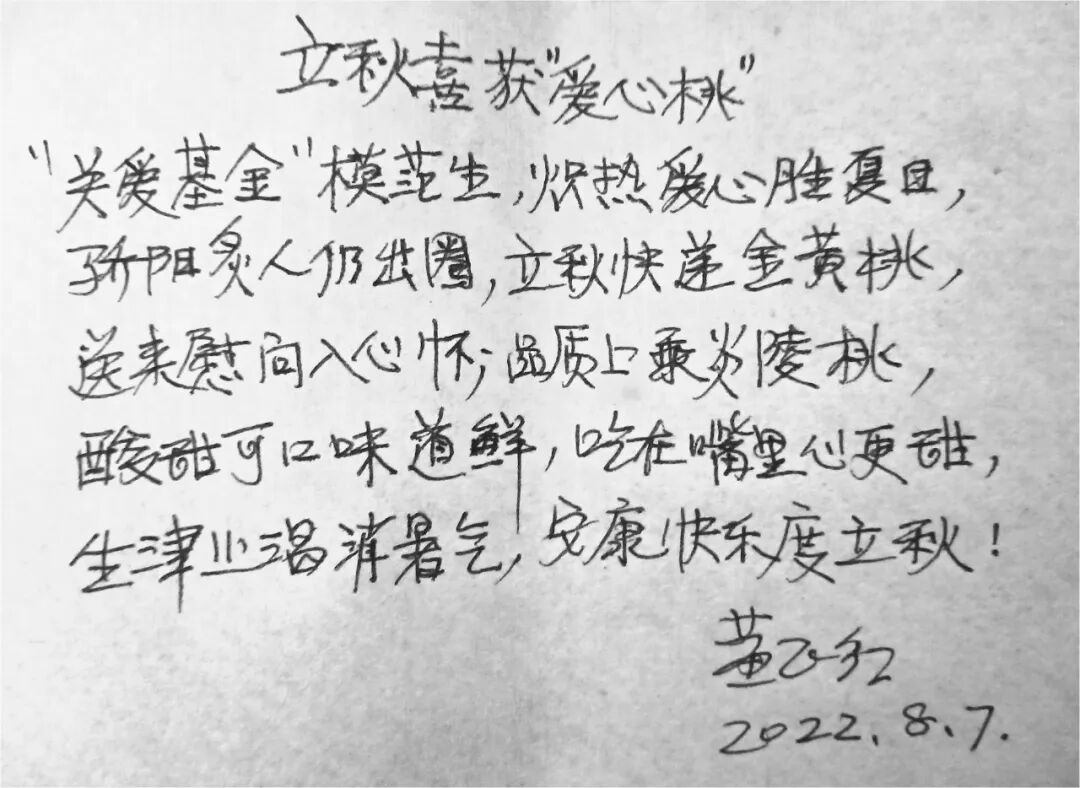 立秋喜获"爱心桃"
"关爱基金"模范生,炽热爱心胜夏日,
骄阳炙人仍出圈,立秋快递金黄桃,
送来慰问入心怀;品质上乘炎陵桃,
酸甜可口味道鲜,吃在嘴里心更甜,
生津止渴消暑气,安康快乐度立秋!
2022.8.7.